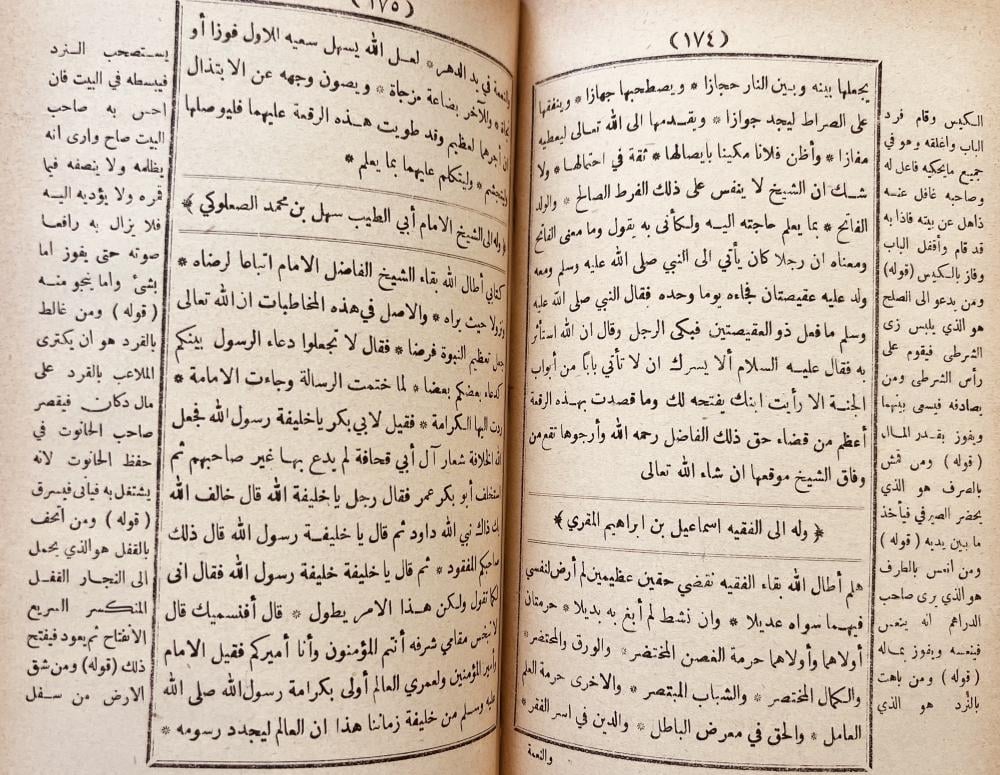 (١٧٤)
يجعلها بينه وبين النار حجازا * ويصطحبها جهازا * وينفقها
على الصراط ليجد جوازا * ويقدمها الى الله تعالى ليعطيه
مفازا * وأظن فلانا مكينا بايصالها * ثقة في احتمالها * ولا
شك ان الشيخ لا ينفس على ذلك الفرط الصالح * والولد
الفاتح * بما يعلم حاجته اليه ولكأنى به يقول وما معنى الفاتح
ومعناه ان رجلا كان يأتي الى النبي صلى الله عليه وسلم ومعه
ولد عليه عقيصتان فجاءه يوما وحده فقال النبي صلى الله عليه
وسلم ما فعل ذو العقيصتين فبكى الرجل وقال ان الله استأثر
به فقال عليه السلام ألا يسرك ان لا تأتي بابا من أبواب
الجنة الا رأيت ابنك يفتحه لك وما قصدت بهذه الرقعة
أعظم من قضاء حق ذلك الفاضل رحمه الله وأرجوها تقع من
وفاق الشيخ موقعها ان شاء الله تعالى
﴿ وله الى الفقيه اسماعيل بن ابراهيم المقري ﴾
هلم أطال الله بقاء الفقيه نقضي حقين عظيمين لم أرض لنفسي
فيهما سواه عديلا * وان نشط لم أبغ به بديلا * حرمتان
أولاهما وأولاهما حرمة الغصن المختضر * والورق والمحتضر *
والكمال المختصر * والشباب المبتصر * والاخرى حرمة العلم
العامل * والحق في معرض الباطل * والدين في اسر الفقر *
والنعمة
الكيس وقام فرد
الباب وأغلقه وهو في
جميع ما يحكيه فاعل له
وصاحبه غافل عنه
ذاهل عن بيته فاذا به
قد قام وأقفل الباب
وفاز بالكيس (قوله)
ومن يدعو الى الصلح
هو الذي يلبس زى
الشرطى فيقوم على
رأس الشرطى ومن
يصادفه فيسمى بينهما
ويفوز بقدر المال
(قوله) ومن قش
بالصرف هو الذي
يحضر الصيرفي فيأخذ
ما بين يديه (قوله)
ومن انعس بالطرف
هو الذي يرى صاحب
الدراهم انه ينعس
فينعسه ويفوز بماله
(قوله) ومن باهت
بالنرد هو الذي
(١٧٥)
والنعمة في يد الدهر * لعل الله يسهل سعيه للاول فوزا أو
نجاة * وللآخر بضاعة مزجاة * ويصون وجهه عن الابتذال
ان أجرها لعظيم وقد طويت هذه الرقعة عليهما فليوصلها
وليتكلم عليهما بما يعلم *
﴿ وله الى الشيخ الامام أبي الطيب سهل بن محمد الصعلوكي ﴾
كتابي أطال الله بقاء الشيخ الفاضل الامام اتباعا لرضاه *
ونزولا حيث يراه * والاصل في هذه المخاطبات ان الله تعالى
جعل تعظيم النبوة فرضا * فقال لا تجعلوا دعاء الرسول بينكم
كدعاء بعضكم بعضا * لما ختمت الرسالة وجاءت الامامة *
ردت اليها الكرامة * فقيل لابي بكر يا خليفة رسول الله فجعل
الله الخلافة شعار آل أبي قحافة لم يدع بها غير صاحبهم ثم
استخلف أبو بكر عمر فقال رجل يا خليفة الله قال خالف الله
بك ذاك نبي الله داود ثم قال يا خليفة رسول الله قال ذلك
صاحبكم المفقود * ثم قال يا خليفة خليفة رسول الله فقال انى
لكما تقول ولكن هذا الامر يطول * قال أفنسميك قال
لا تبخس مقامي شرفه أنتم المؤمنون وأنا أميركم فقيل الامام
وأمير المؤمنين ولعمري العالم أولى بكرامة رسول الله صلى الله
عليه وسلم من خليفة زماننا هذا ان العالم ليجدد رسومه *
يستصحب النرد
فيبسطه في البيت فان
احس به صاحب
البيت صاح وارى انه
يظلمه ولا ينصفه فيما
قمره ولا يؤديه اليه
فلا يزال به رافعا
صوته حتى يفوز اما
بشئ وأما ينجو منه
(قوله) ومن غالط
بالقرد هو ان يكترى
الملاعب بالقرد على
مال دكان فيقصر
صاحب الحانوت في
حفظ الحانوت لانه
يشتغل به فيأتى فيسرق
(قوله) ومن اتحف
بالقفل هو الذي يحمل
الى النجار القفل
المنكسر السريع
الانفتاح ثم يعود فيفتح
ذلك (قوله) ومن شق
الارض من سفل